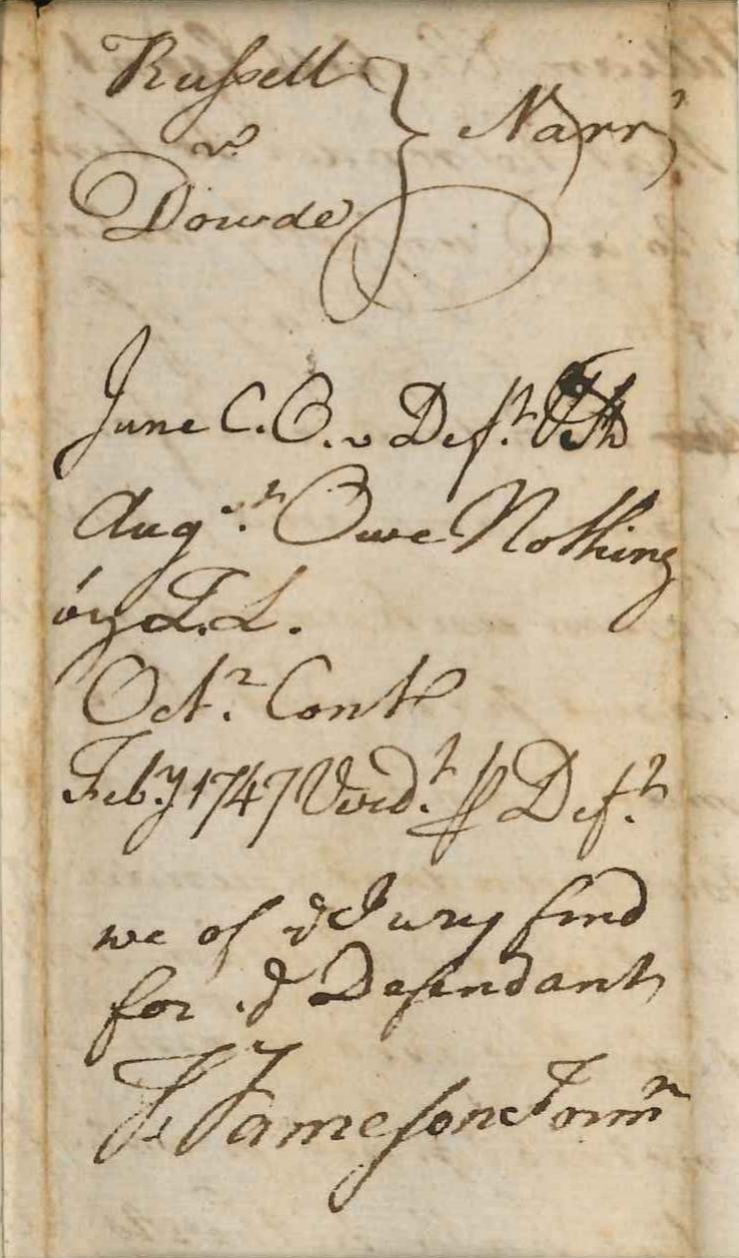 Russell
vs
Dowde } Narr
June C. O. v Deft
Augt Owe Nothing
by T. L.
Octr Contd
Feby 1747 Verdt p Deft
we of ye Jury find
for ye Defendant
J. Jameson Formn